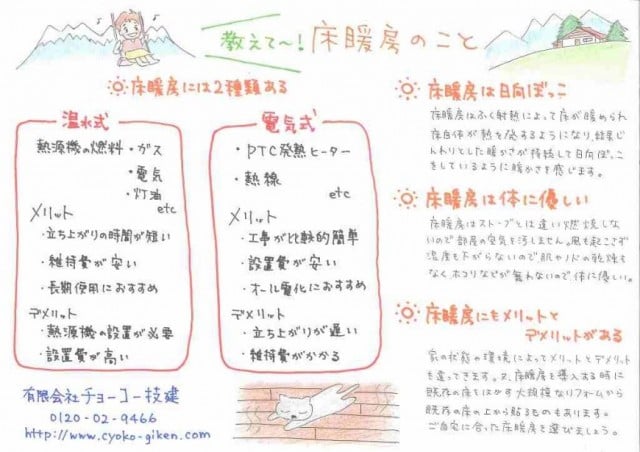 教えて〜!床暖房のこと
床暖房には2種類ある
温水式
熱源機の燃料・ガス
・電気
・灯油
etc
メリット
・立ち上がりの時間が短い
・維持費が安い
・長期使用におすすめ
デメリット
・熱源機の設置が必要
・設置費が高い
電気式
・PTC発熱ヒーター
・熱線
etc
メリット
・工事が比較的簡単
・設置費が安い
・オール電化におすすめ
デメリット
・立ち上がりが遅い
・維持費がかかる
有限会社チョーコー技建
0120-02-9466
http://www.cyoko-giken.com
床暖房は日向ぼっこ
床暖房はふく射熱によって床が暖められ
床自体が熱を発するようになり、結果じ
んわりとした暖かさが持続して日向ぼっこ
をしているように暖かさを感じます。
床暖房は体に優しい
床暖房はストーブとは違い燃焼しな
いので部屋の空気を汚しません。風も起こさず
湿度も下がらないので肌やノドの乾燥も
なくホコリなどが舞わないので体に優しい。
床暖房にもメリットと
デメリットがある
家の状態や環境によってメリットとデメリット
も違ってきます。又、床暖房を導入する時に
既存の床をはがす大規模なリフォームから
既存の床の上から貼るものもあります。
ご自宅に合った床暖房を選びましょう。